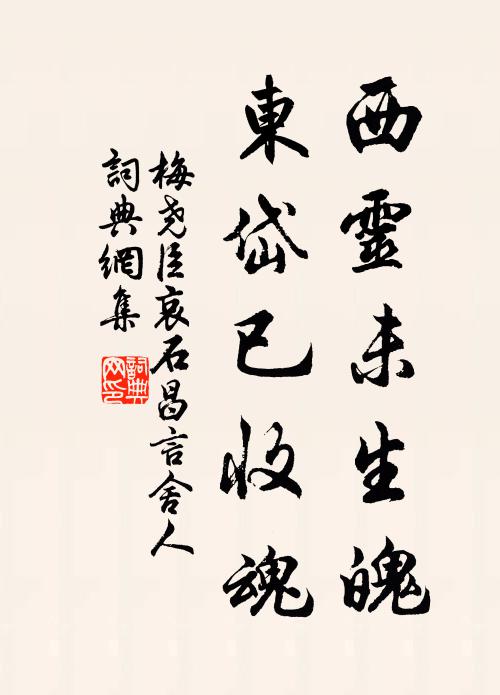 西靈未生魄
東岱已收魂
梅尧臣哀石昌言舍人
詞典網集
詞典網印